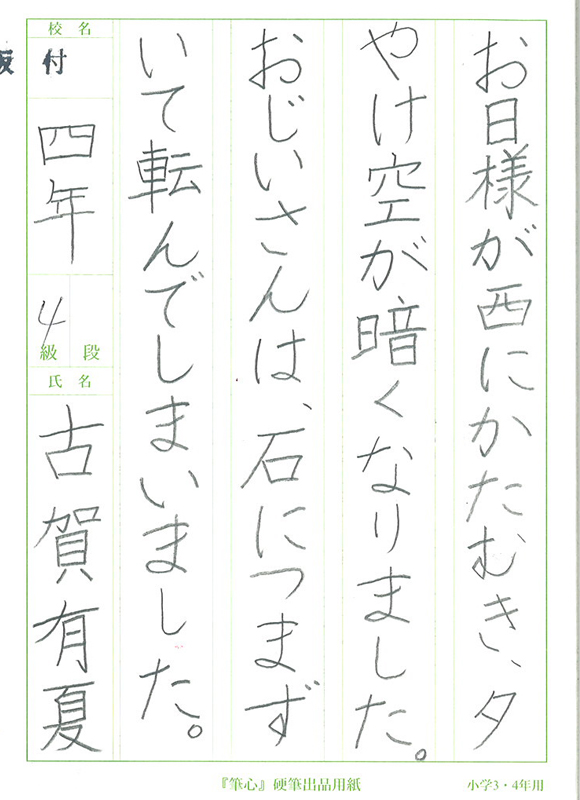 お日様が西にかたむき、夕
やけ空が暗くなりました。
おじいさんは、石につまず
いて転んでしまいました。
校名
板付
四年
4
級 段
氏名
古賀有夏
『筆心』硬筆出品用紙
小学3・4年用